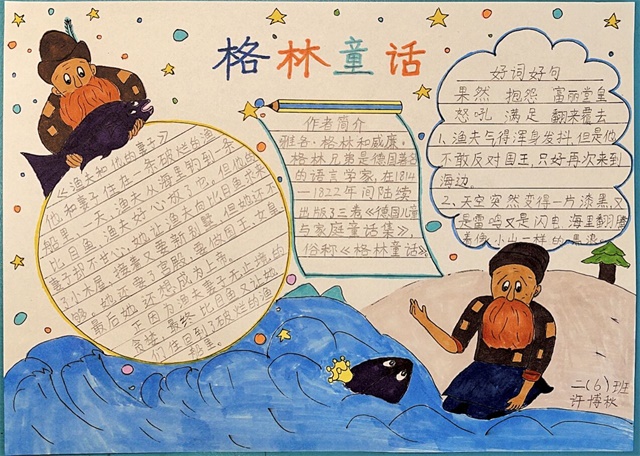 格林童话
《渔夫和他的妻子》
他和妻子住在一条破烂的渔
船里。一天,渔夫从海里钓到一条
比目鱼,渔夫好心放了它。但他的
妻子却不甘心,她让渔夫向比目鱼要来
了小木屋,接着又要新别墅,但她还不
够。她还要了宫殿,要做国王、女皇
最后她还想成为上帝。
正因为渔夫妻子无止境的
贪婪,最终,比目鱼又让她
们住回到了破烂的渔
船里。
作者简介
雅各·格林和威廉·
格林兄弟是德国著名
的语言学家,在1814
—1822年间陆续
出版了三卷《德国儿童
与家庭童话集》
俗称《格林童话》
好词好句
果然 抱怨 富丽堂皇
怒吼 满足 翻来覆去
1、渔夫气得浑身发抖,但是他
不敢反对国王,只好再次来到
海边。
2、天空突然变得一片漆黑又
是雷鸣又是闪电,海里翻腾
着像小山一样的黑浪
二(6)班
许博秋